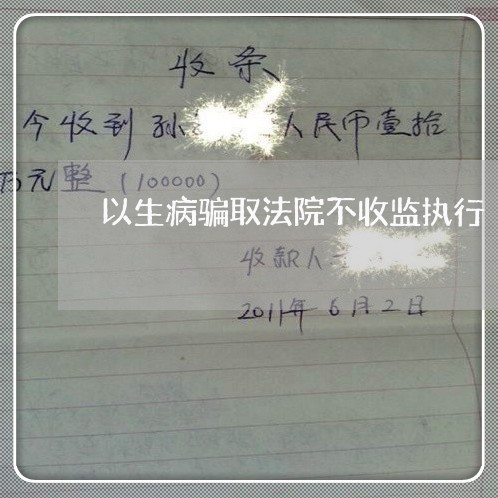 收条
今收到孙 人民币壹拾
万元整(100000)
以生病骗取法院不收监执行
收款人
2011年6月2日